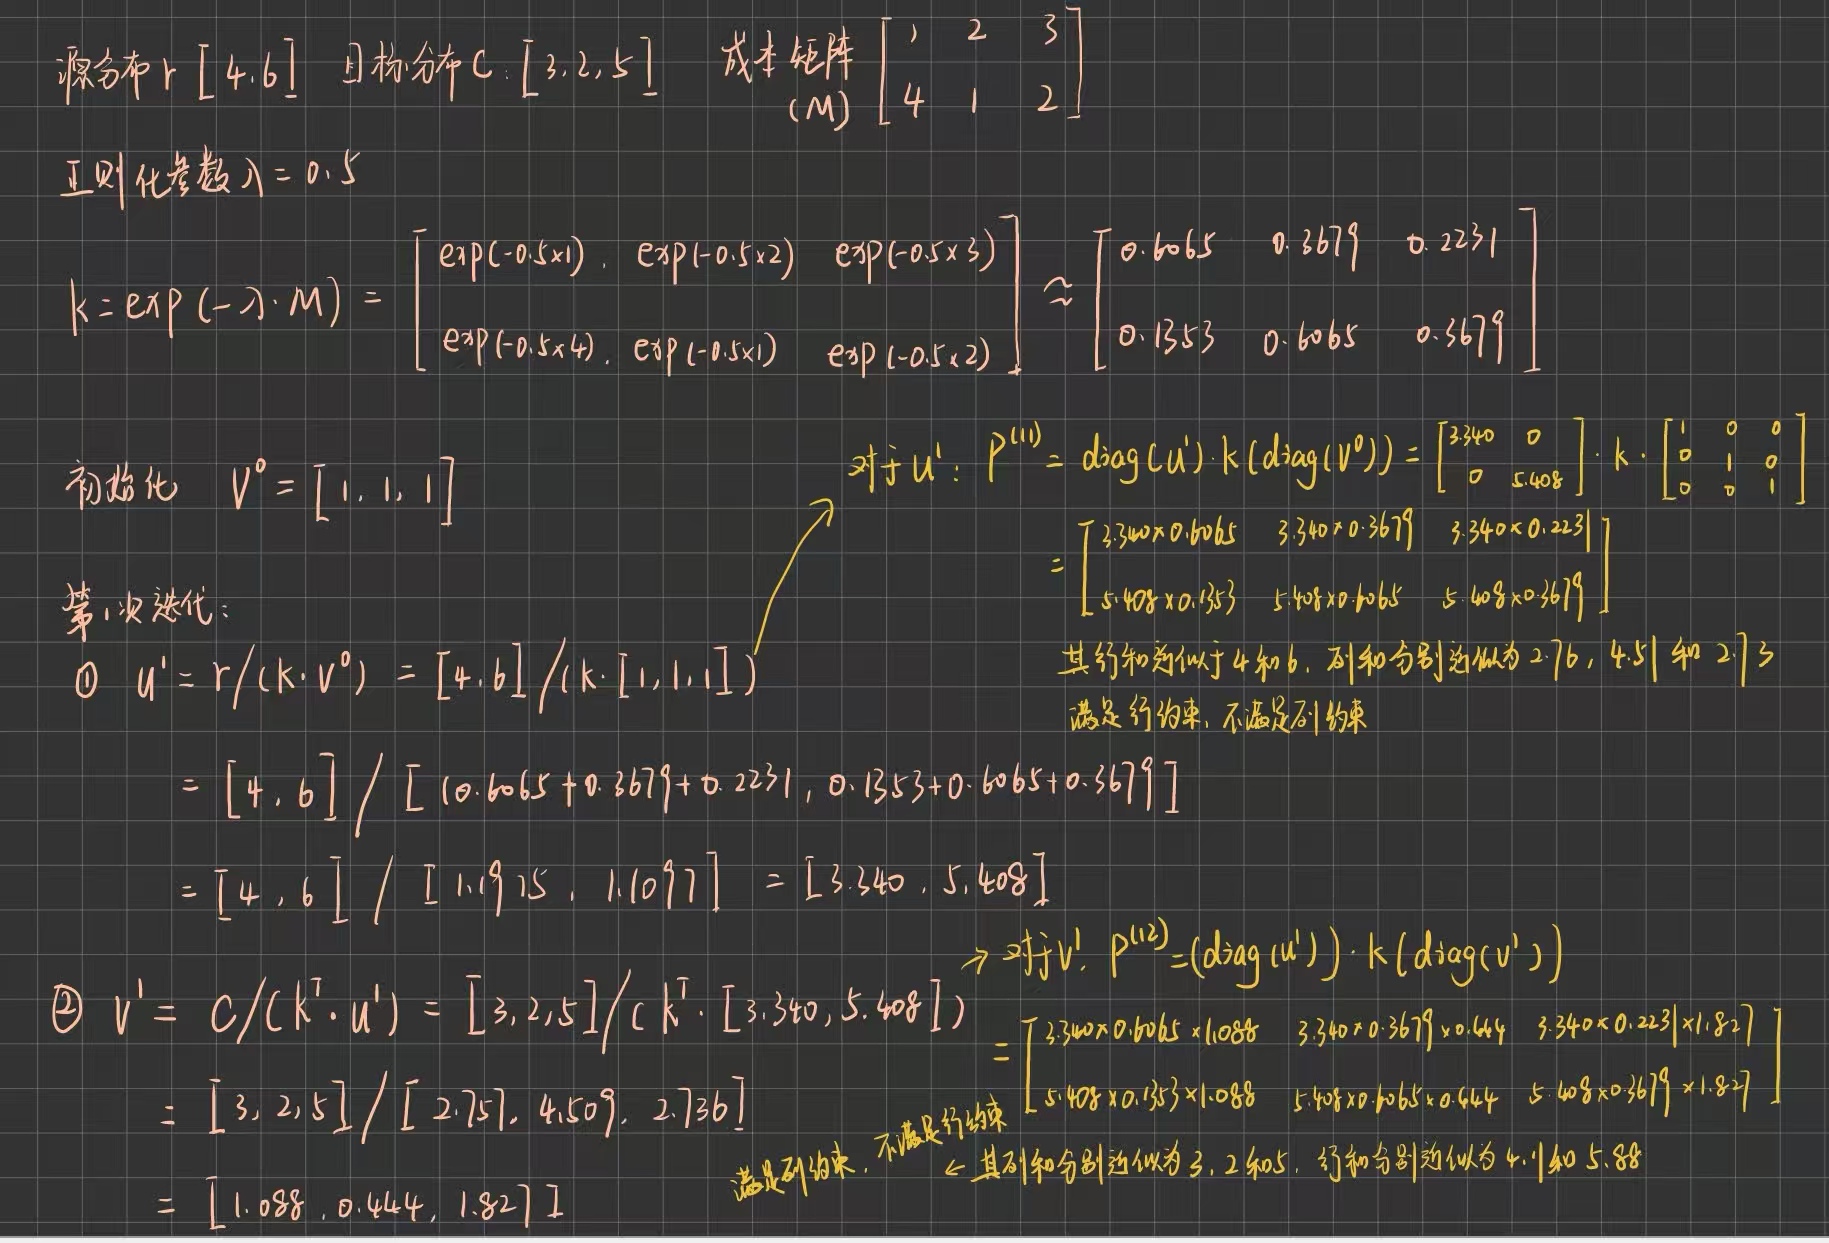 源分布r [4.6] 目标分布C: [3,2,5] 成本矩阵(M) [1 2 3
4 1 2]
正则化参数λ=0.5
k=exp(-λ·M) = [exp(-0.5×1), exp(-0.5×2) exp(-0.5×3)
exp(-0.5×4), exp(-0.5×1) exp(-0.5×2)] ≈ [0.6065 0.3679 0.2231
0.1353 0.6065 0.3679]
初始化 V⁰ = [1, 1, 1]
第1次迭代:
① u' = r/(k·v⁰) = [4,6]/(k·[1,1,1])
= [4,6] / [(0.6065+0.3679+0.2231, 0.1353+0.6065+0.3679]
= [4,6] / [1.1975, 1.1097] = [3.340, 5.408]
对于u': P⁽¹¹⁾ = diag(u')·k(diag(v⁰)) = [3.340 0
0 5.408] · k · [1 0 0
0 1 0
0 0 1]
= [3.340×0.6065 3.340×0.3679 3.340×0.2231
5.408×0.1353 5.408×0.6065 5.408×0.3679]
其行和近似于4和6, 列和分别近似为2.76, 4.51和2.73
满足行约束, 不满足列约束
② v' = C/(kᵀ·u') = [3,2,5]/(kᵀ·[3.340,5.408])
= [3,2,5]/[2.757, 4.509, 2.736]
= [1.088, 0.444, 1.827]
→ 对于v'. P⁽¹²⁾=(diag(u'))·k(diag(v'))
= [3.340×0.6065×1.088 3.340×0.3679×0.444 3.340×0.2231×1.827
5.408×0.1353×1.088 5.408×0.6065×0.444 5.408×0.3679×1.827]
← 其列和分别近似为3, 2和5, 行和分别近似为4.11和5.88
满足列约束, 不满足行约束